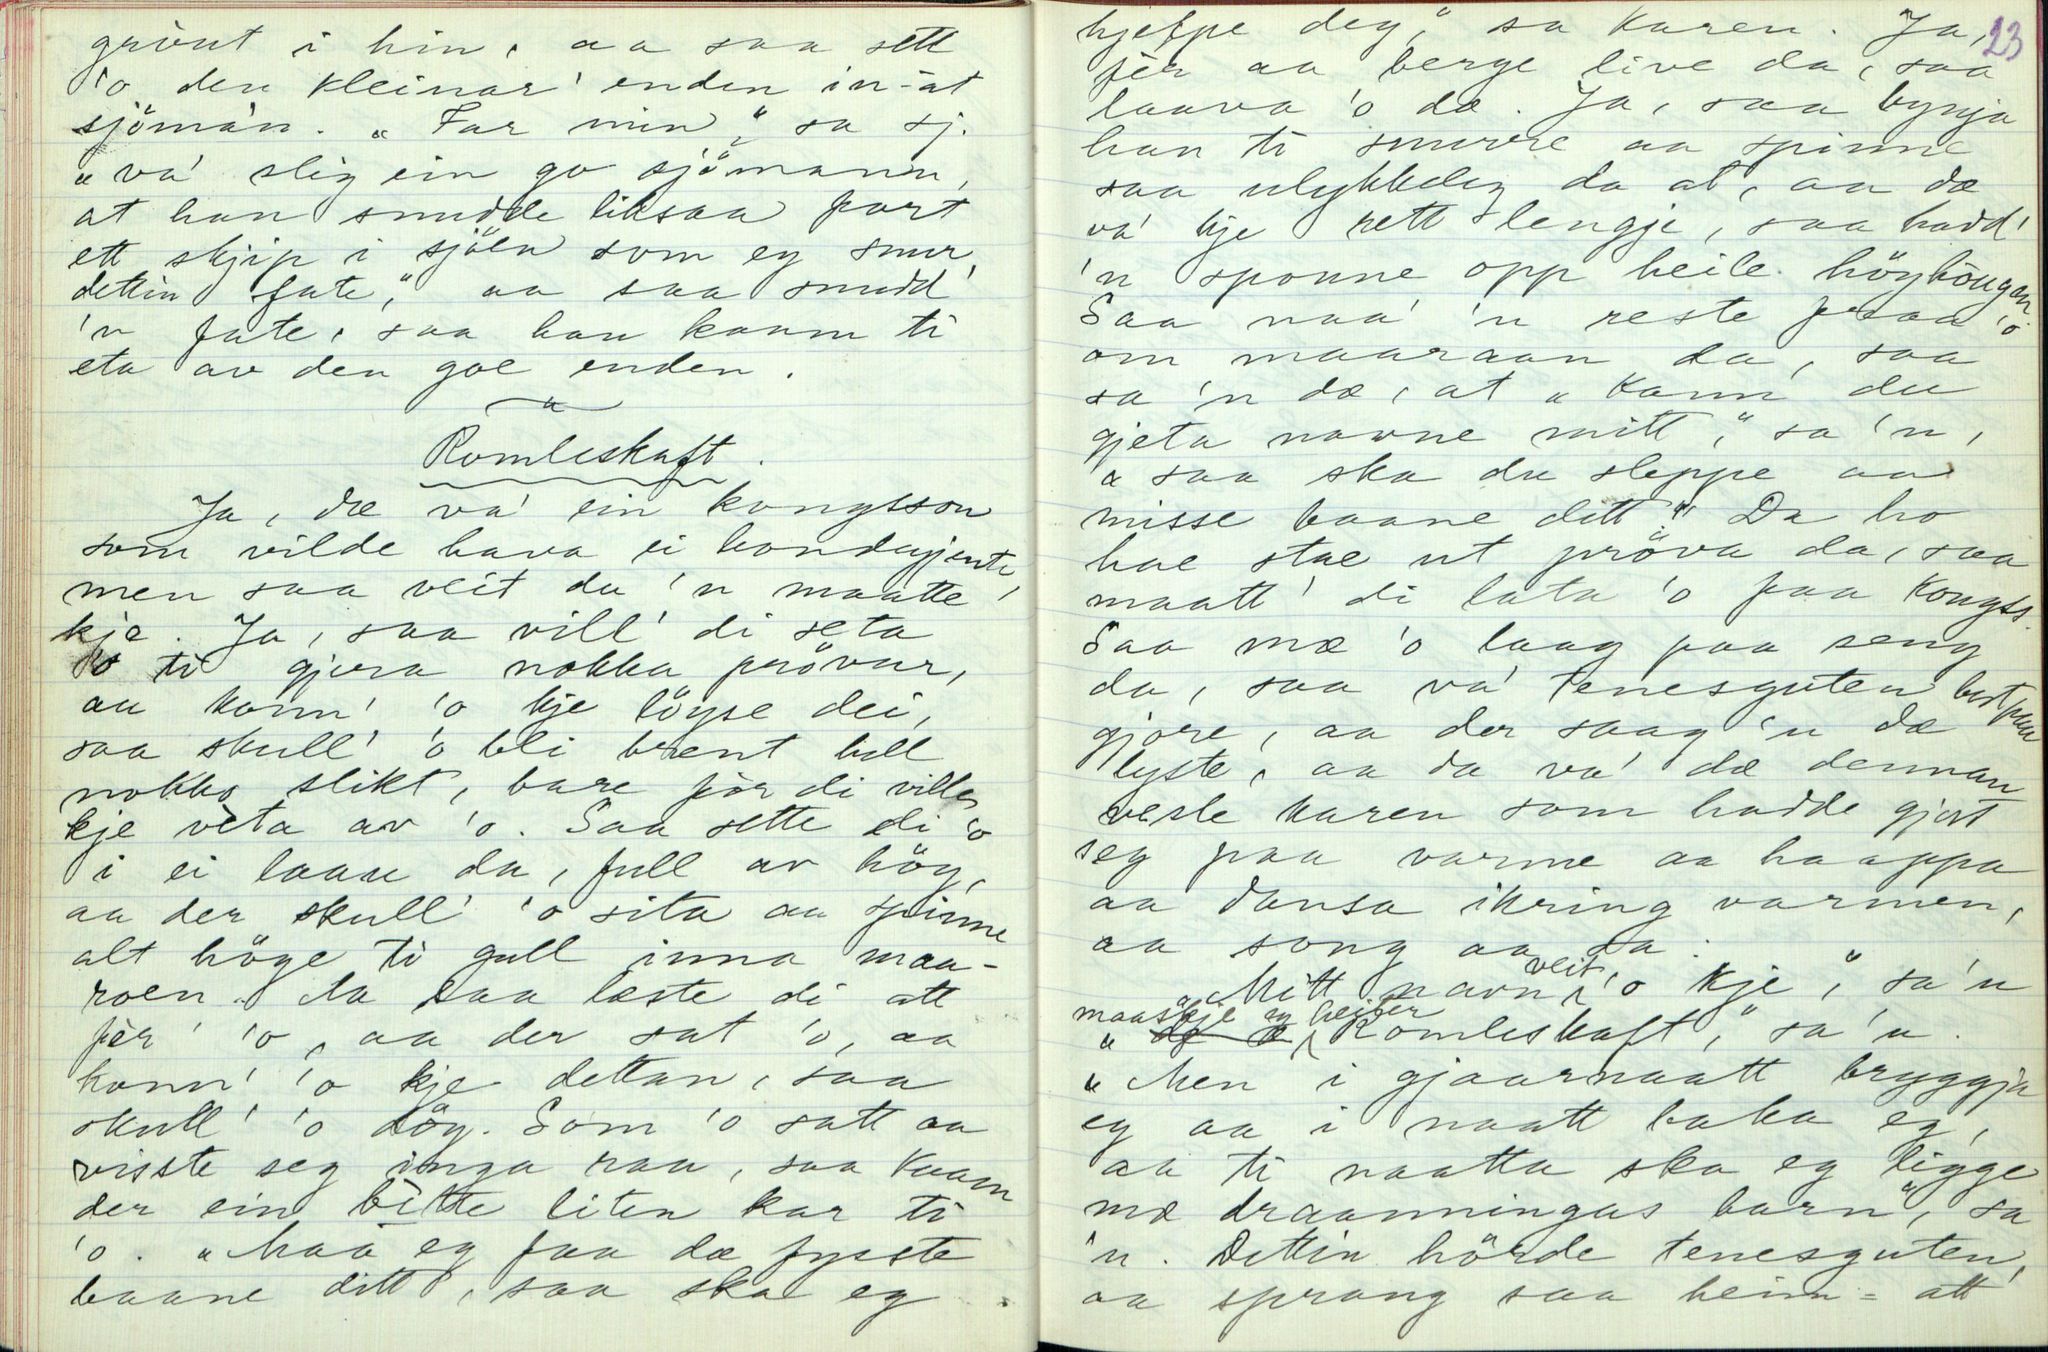 grönt i hin, aa saa sett
'o den kleinar' enden in-åt
sjömån. „Far min“, sa sj.
„va' slig ein go sjömann,
at han snudde liksaa fort
ett skjip i sjöen som eg snur
dettin fate“, aa saa snudd'
'n fate, saa han kaam ti
eta av den goe enden.
Romleskaft.
Ja, dæ va' ein kongsson
som vilde hava ei bondagjente,
men saa veit du 'n maatte'
kje. Ja, saa vill' di seta
'o ti gjera nokka prövur,
aa konn' 'o kje löyse dei,
saa skull' 'o bli brent hell
nokko slikt, bareför di ville
kje veta av 'o. Saa sette di 'o
i ei laave da, full av höy,
aa der skull' 'o sita aa spinne
alt höye ti gull inna maa-
roen. Ja saa læste di att
för 'o, aa der sat 'o, aa
konn' 'o kje dettan, saa
skull' 'o döy. Som 'o satt aa
visste seg inga raa, saa kaam
der ein bitte liten kar ti
'o. „Maa eg faa dæ fysste
baane ditt, saa ska eg
23
hjelpe deg“, sa karen. Ja,
för aa berge live da, saa
laava 'o dæ. Ja, saa bynja
han ti snurre aa spinne
saa ulykkeleg da at, aa dæ
va' kje rett lengje, saa hadd'
'n sponne opp heile höyhougen.
Saa naa' 'n reste fraa 'o
om maaraan da, saa
sa 'n dæ, at „kann du
gjeta navne mitt“, sa 'n,
„saa ska du sleppe aa
misse baane ditt“. Da ho
hae stae ut pröva da, saa
maatt' di lata 'o faa kongss.
Saa mæ 'o laag paa seng
da, saa va' tenesguten bortpaa
gjore, aa der saag 'n dæ
lyste, aa da va' dæ dennan
vesle karen som hadde gjort
seg paa varme aa haappa
aa dansa ikring varmen,
aa song aa sa:
„Mitt navn veit 'o kje“, sa 'n
„maaskje eg heiter Romleskaft“, sa 'n.
„Men i gjaarnaatt bryggja
eg aa i naatt baka eg,
aa ti naatta ska eg ligge
mæ draanningas barn“, sa
'n. Dettin hörde tenesguten,
aa sprang saa heim-att